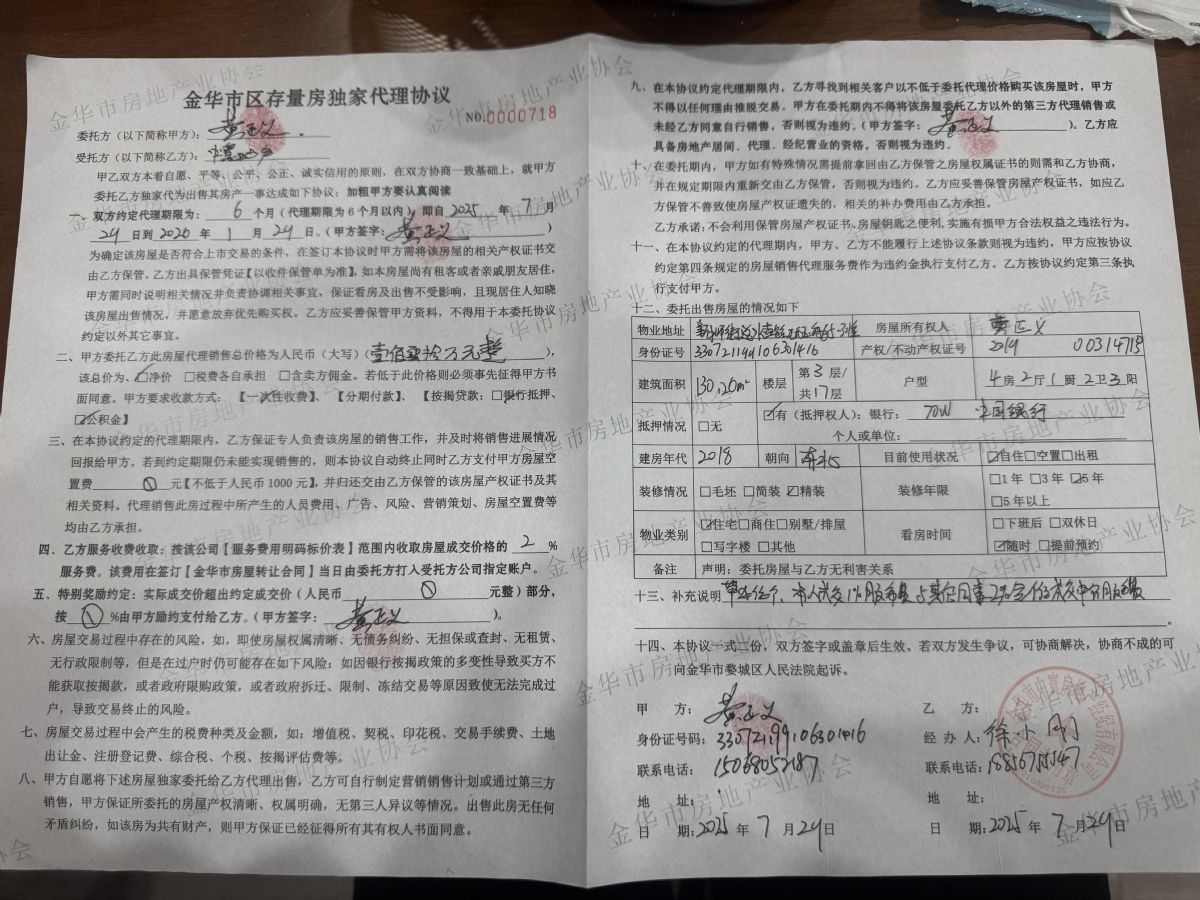 金华市区存量房独家代理协议
NO.0000718
委托方（以下简称甲方）：黄正义
受托方（以下简称乙方）：中寰地产
甲乙双方本着自愿、平等、公平、公正、诚实信用的原则，在双方协商一致基础上，就甲方
委托乙方独家代为出售其房产一事达成如下协议：加粗甲方要认真阅读
一、双方约定代理期限为：6个月（代理期限为6个月以内）即自2025年7月
24日到2026年1月24日。（甲方签字：黄正义）
为确定该房屋是否符合上市交易的条件，在签订本协议时甲方需将该房屋的相关产权证书交
由乙方保管，乙方出具保管凭证【以收件保管单为准】，如本房屋尚有租客或者亲戚朋友居住，
甲方需同时说明相关情况并负责协调相关事宜，保证看房及出售不受影响，且现居住人知晓
该房屋出售情况，并愿意放弃优先购买权。乙方应妥善保管甲方资料，不得用于本委托协议
约定以外其它事宜。
二、甲方委托乙方此房屋代理销售总价格为人民币（大写）（壹佰 拾万元整），
该总价为、☑净价 □税费各自承担 □含卖方佣金。若低于此价格则必须事先征得甲方书
面同意。甲方要求收款方式：【一次性收费】、【分期付款】、【按揭贷款：□银行抵押、
☑公积金】
三、在本协议约定的代理期限内，乙方保证专人负责该房屋的销售工作，并及时将销售进展情况
回报给甲方。若到约定期限仍未能实现销售的，则本协议自动终止同时乙方支付甲方房屋空
置费 元【不低于人民币1000元】，并归还交由乙方保管的该房屋产权证书及其
相关资料。代理销售此房过程中所产生的人员费用、广告、风险、营销策划、房屋空置费等
均由乙方承担。
四、乙方服务收费收取：按该公司【服务费用明码标价表】范围内收取房屋成交价格的2%
服务费。该费用在签订【金华市房屋转让合同】当日由委托方打入受托方公司指定账户。
五、特别奖励约定：实际成交价超出约定成交价（人民币 元整）部分，
按 %由甲方励约支付给乙方。（甲方签字：黄正义）。
六、房屋交易过程中存在的风险，如，即使房屋权属清晰、无债务纠纷、无担保或查封、无租赁、
无行政限制等，但是在过户时仍可能存在如下风险：如因银行按揭政策的多变性导致买方不
能获取按揭款，或者政府限购政策，或者政府拆迁、限制、冻结交易等原因致使无法完成过
户，导致交易终止的风险。
七、房屋交易过程中会产生的税费种类及金额，如：增值税、契税、印花税、交易手续费、土地
出让金、注册登记费、综合税、个税、按揭评估费等。
八、甲方自愿将下述房屋独家委托给乙方代理出售，乙方可自行制定营销销售计划或通过第三方
销售，甲方保证所委托的房屋产权清晰、权属明确，无第三人异议等情况。出售此房无任何
矛盾纠纷，如该房为共有财产，则甲方保证已经征得所有其有权人书面同意。
九、在本协议约定代理期限内，乙方寻找到相关客户以不低于委托代理价格购买该房屋时，甲方
不得以任何理由推脱交易。甲方在委托期内不得将该房屋委托乙方以外的第三方代理销售或
未经乙方同意自行销售，否则视为违约。（甲方签字：黄正义）。乙方应
具备房地产居间、代理、经纪营业的资格，否则视为违约。
十、在委托期内，甲方如有特殊情况需提前拿回由乙方保管之房屋权属证书的则需和乙方协商，
并在规定期限内重新交由乙方保管，否则视为违约。乙方应妥善保管房屋产权证书，如应乙
方保管不善致使房屋产权证遗失的，相关的补办费用由乙方承担。
乙方承诺：不会利用保管房屋产权证书、房屋钥匙之便利，实施有损甲方合法权益之违法行为。
十一、在本协议约定的代理期内，甲方、乙方不能履行上述协议条款则视为违约，甲方应按协议
约定第四条规定的房屋销售代理服务费作为违约金执行支付乙方。乙方按协议约定第三条执
行支付甲方。
十二、委托出售房屋的情况如下
物业地址 房屋所有权人 黄正义
身份证号 330721199106301416 产权/不动产权证号 2019 00314713
建筑面积 130.26m² 楼层 第3层/共17层 户型 4房2厅1厨2卫3阳
抵押情况 ☑有（抵押权人）：银行：70W 中国银行
□无 个人或单位：
建房年代 2018 朝向 目前使用状况 ☑自住□空置□出租
装修情况 □毛坯 □简装 ☑精装 装修年限 □1年 □3年 ☑5年
□5年以上
物业类别 ☑住宅□商住□别墅/排屋 看房时间 □下班后 □双休日
□写字楼 □其他 ☑随时 □提前预约
备注 声明：委托房屋与乙方无利害关系
十三、补充说明
十四、本协议一式二份，双方签字或盖章后生效。若双方发生争议，可协商解决，协商不成的可
向金华市婺城区人民法院起诉。
甲 方：黄正义
乙 方：
身份证号码：330721199106301416
经 办 人：徐小刚
联系电话：15068052187
联系电话：19856755547
地 址：
地 址：
日 期：2025年7月24日
日 期：2025年7月24日
金华市房地产业协会